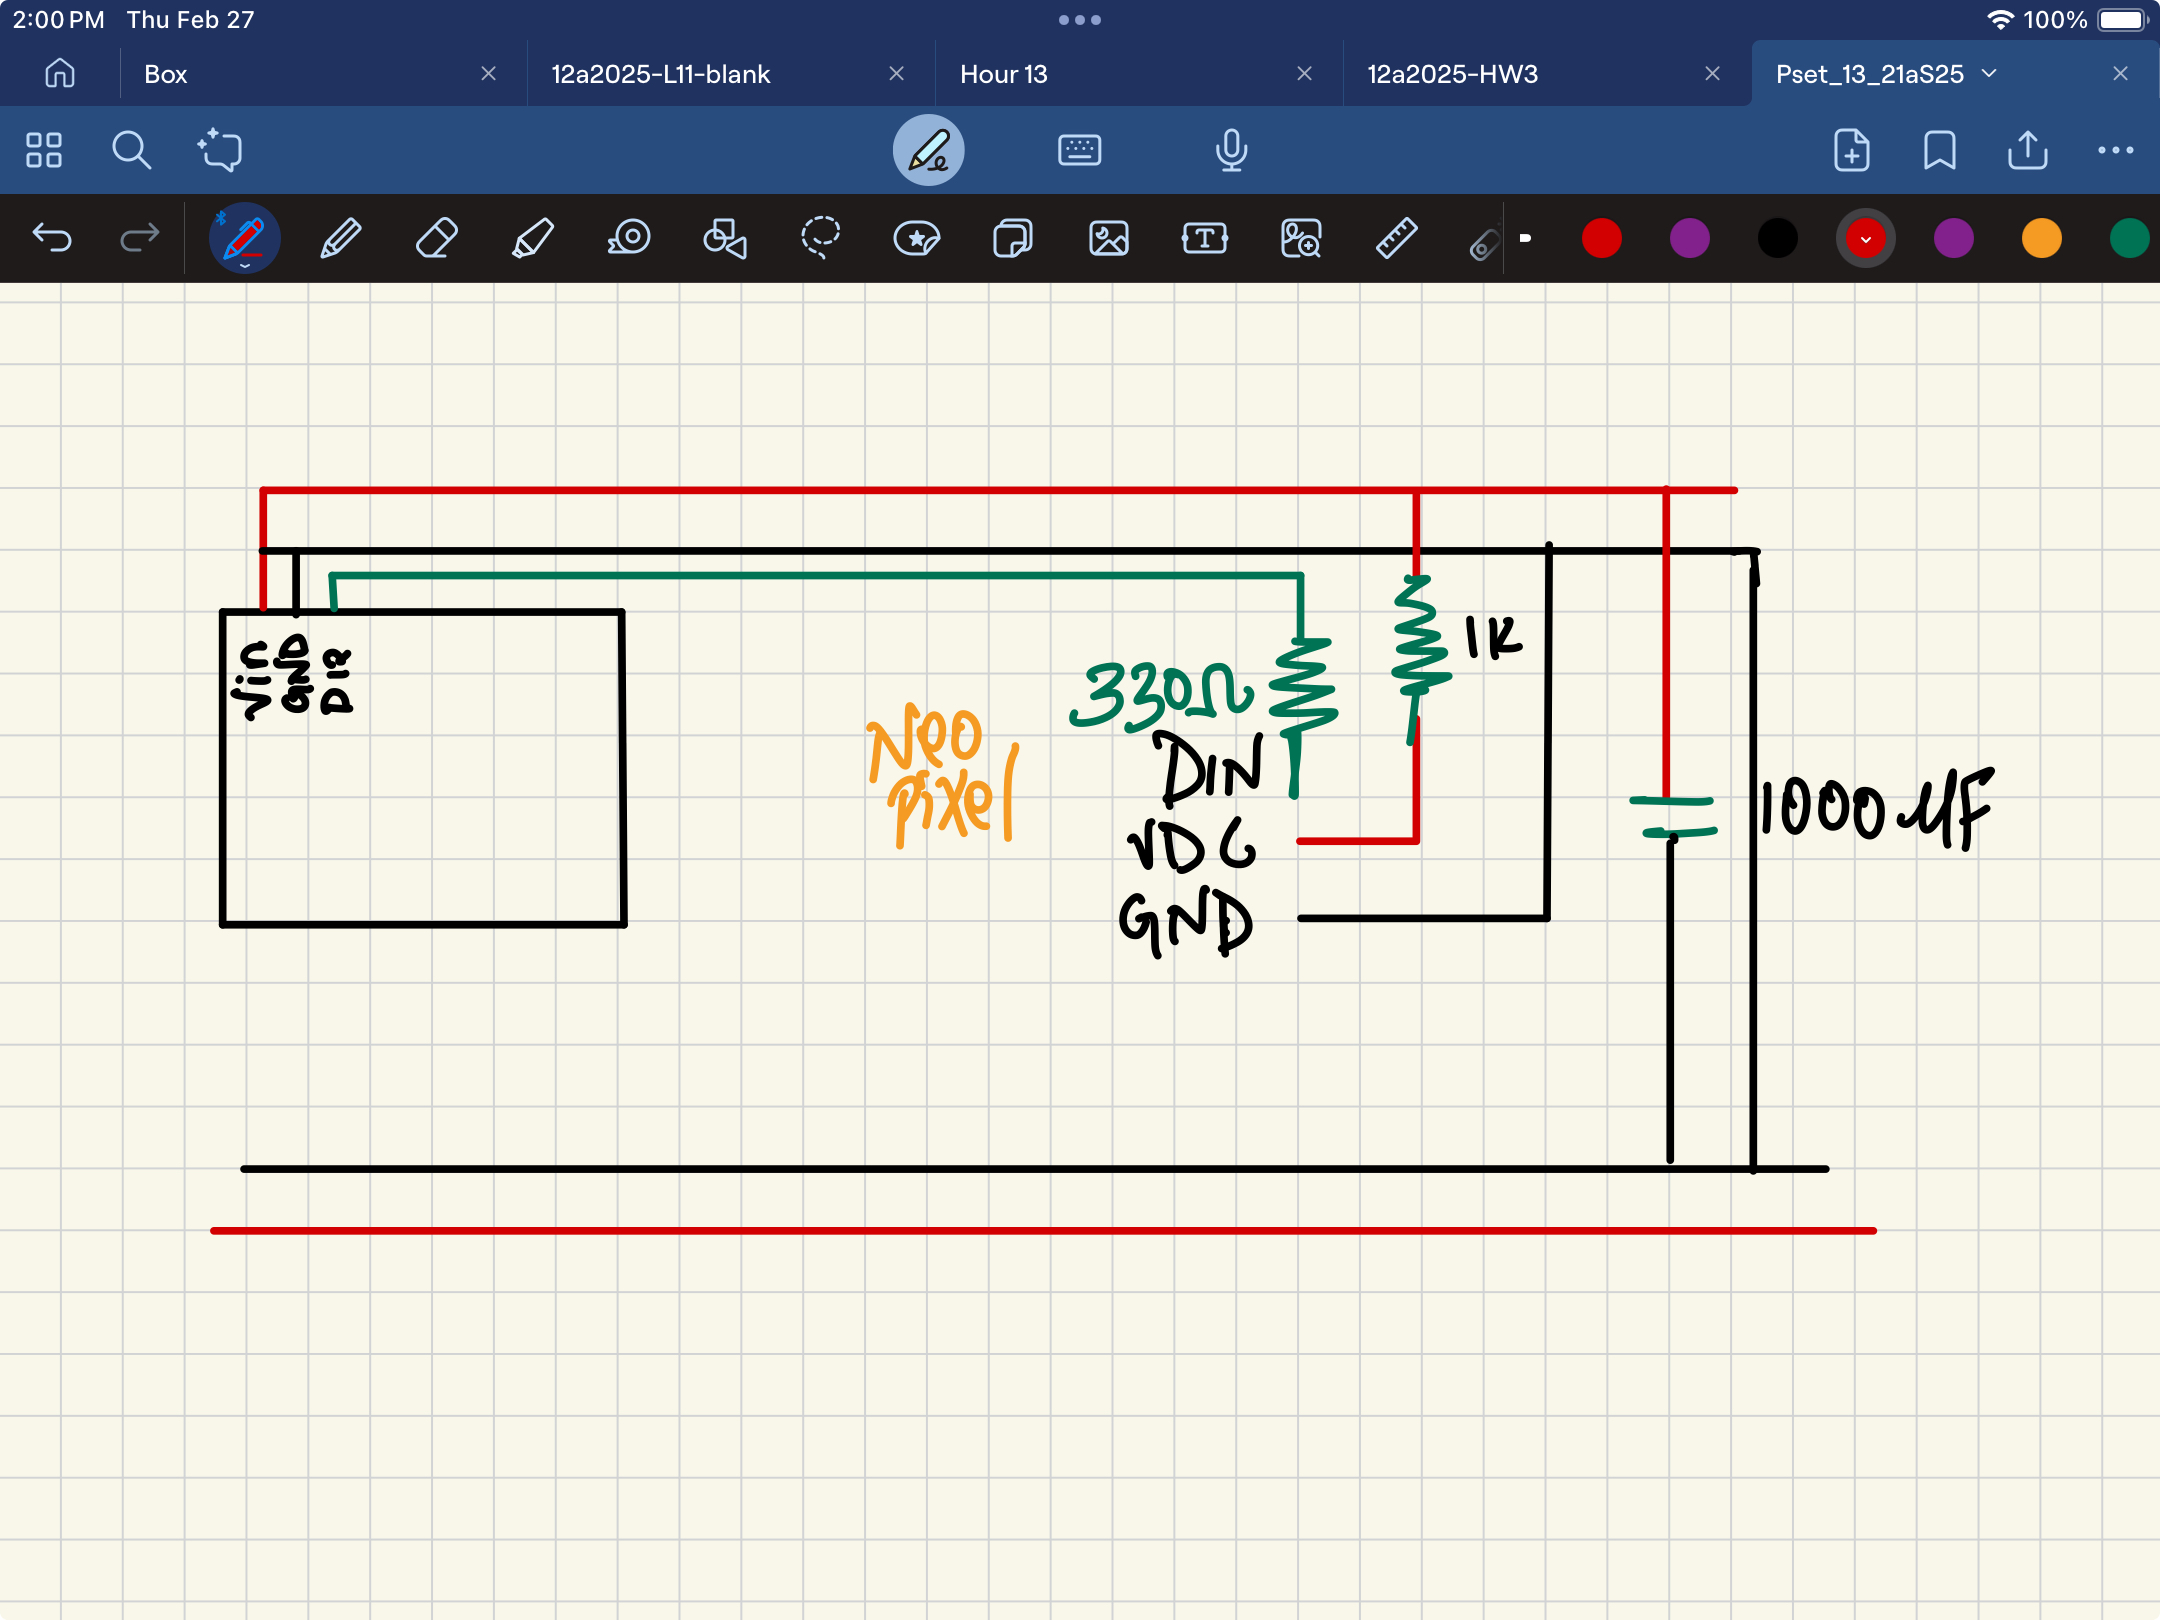 2:00 PM Thu Feb 27
100%
Box
12a2025-L11-blank
Hour 13
12a2025-HW3
Pset_13_21aS25
Vin
GND
D12
Neo
pixel
330Ω
1K
DIN
VDC
GND
1000 μF